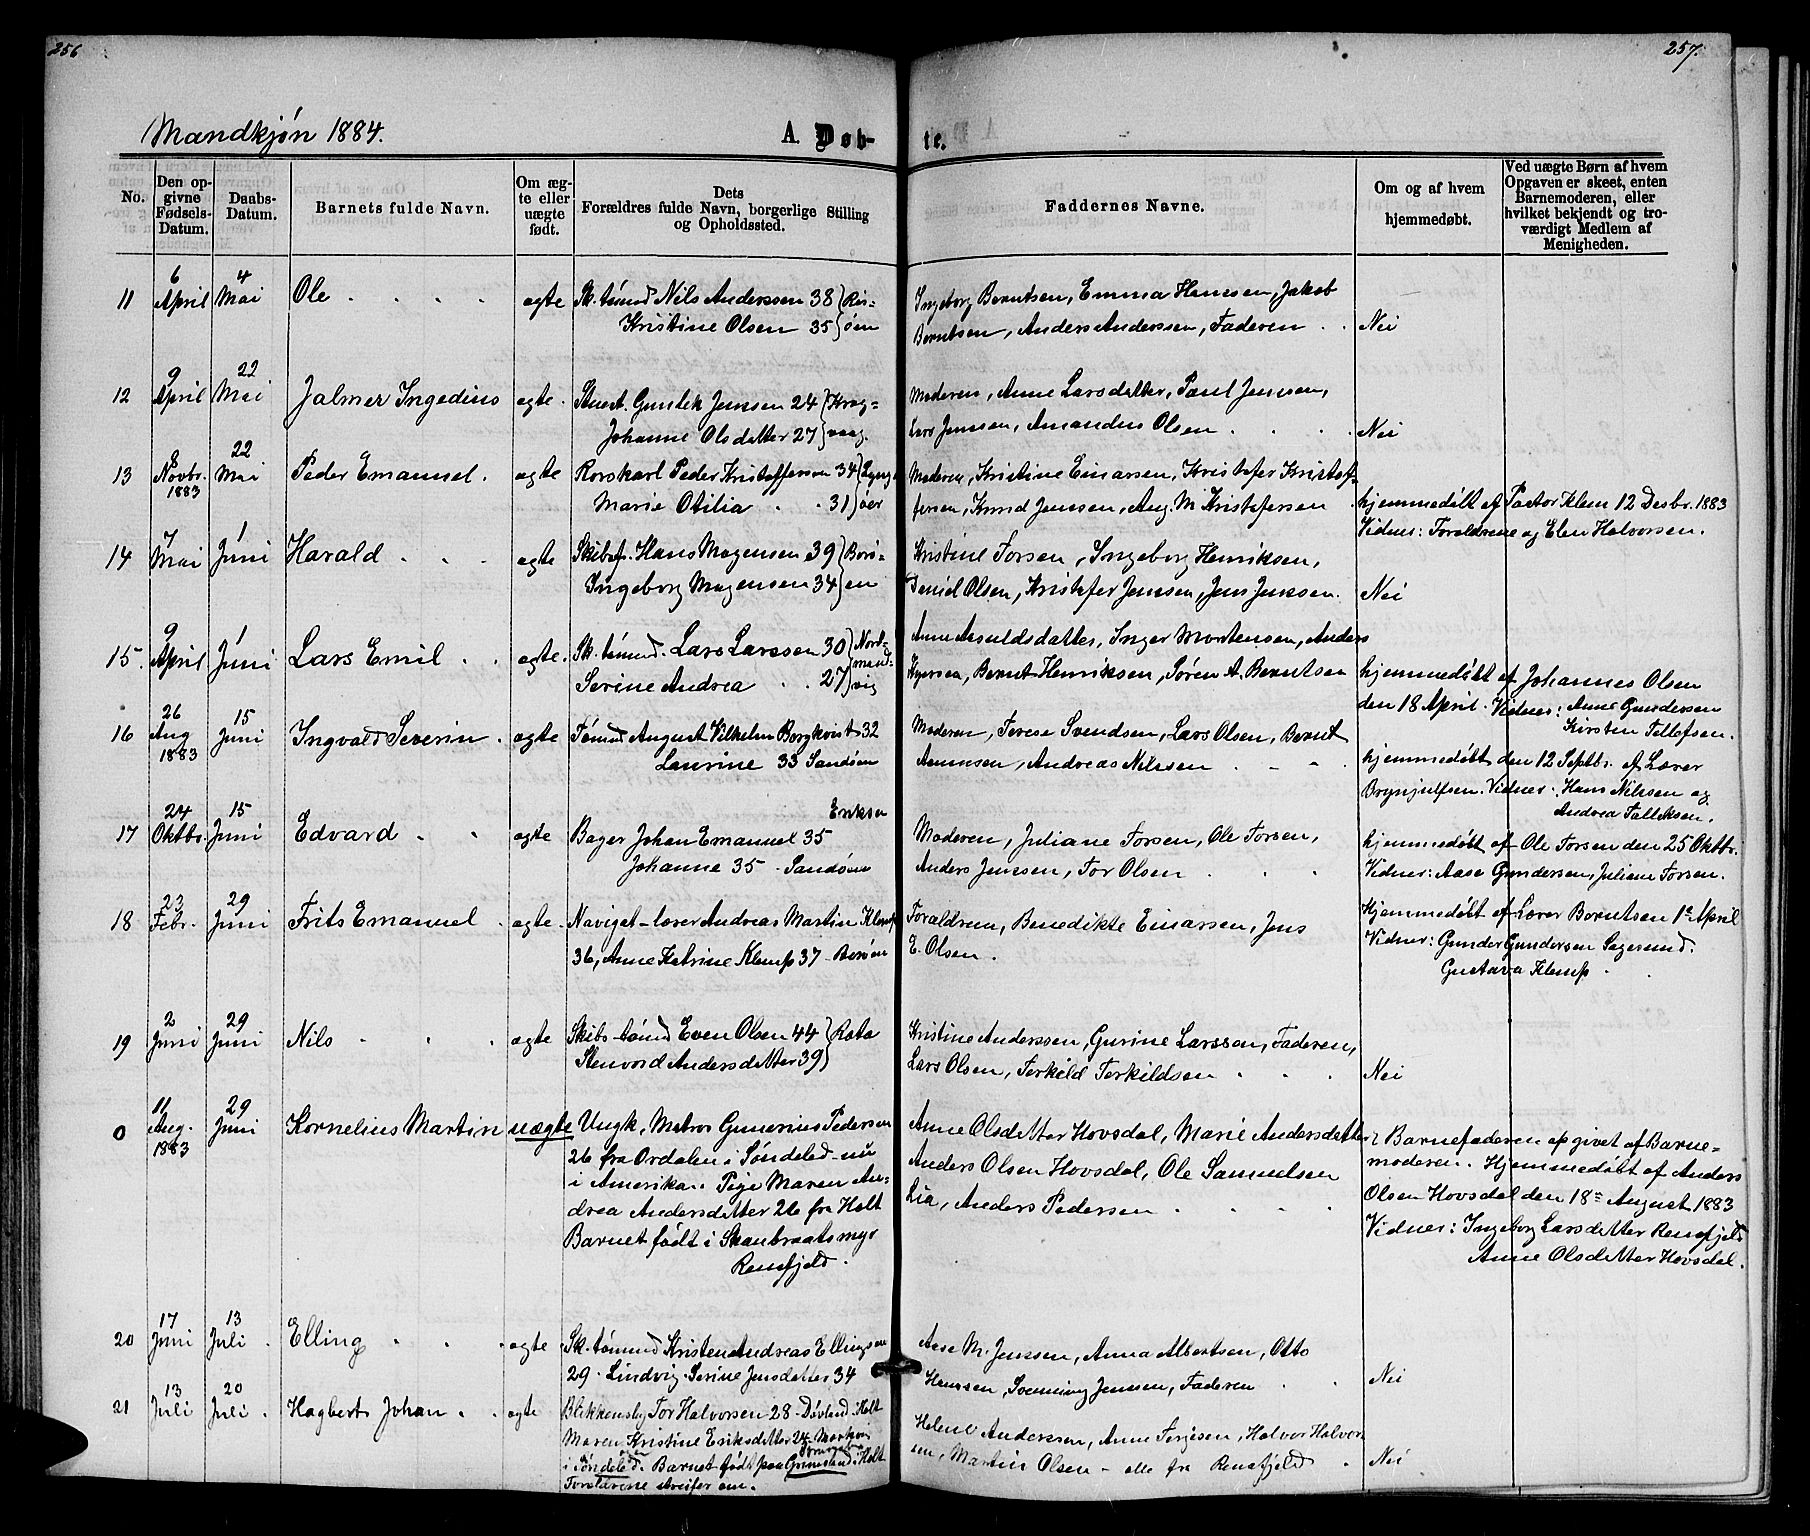 256
257.
Mandkjøn 1884.
A. Døb-
te.
No.
Den op-
givne
Fødsels-
Datum.
Daabs-
Datum.
Barnets fulde Navn.
Om æg-
te eller
uægte
født.
Dets
Forældres fulde Navn, borgerlige Stilling
og Opholdssted.
Faddernes Navne.
Om og af hvem
hjemmedøbt.
Ved uægte Børn af hvem
Opgaven er skeet, enten
Barnemoderen, eller
hvilket bekjendt og tro-
værdigt Medlem af
Menigheden.
11 6 April 4 Mai Ole ægte Sk. tømmd Nils Anderssen 38 Ris-
Kristine Olsen 35 øen
Ingeborg Berntsen, Emma Hanssen, Jakob
Berntsen, Anders Anderssen, Faderen . . Nei
12 9 April 22 Mai Jalmer Ingedius ægte. Gunlek Jenssen 24 Krog-
Johanne Olsdatter 27 vaag.
Moderen, Anne Larsdatter, Paul Jenssen,
Lars Jenssen, Amandus Olsen . . . Nei
13 8 Novbr. 1883 22 Mai Peder Emanuel. ægte Rorskarl Peder Kristoffersen 34 Lyng-
Marie Otilia . . 31 øer
Moderen, Kristine Einarsen, Kristofer Kristof-
fersen, Knud Jenssen, Aug. M. Kristofersen
hjemmedøbt af Pastor Klem 12 Desbr. 1883
Vidner: Forældrene og Elen Halvorsen.
14 7 Mai 1 Juni Harald . . . ægte Skibsf. Hans Mogensen 39 Borø-
Ingeborg Mogensen 34 en
Kristine Torsen, Ingeborg Henriksen,
Daniel Olsen, Kristofer Jenssen, Jens Jenssen. Nei
15. 9 April 1 Juni Lars Emil . . ægte. Sk. tømmd. Lars Larssen 30 Nord-
mands-
Serine Andrea . . 27 vig
Anne Asuldsdatter, Inger Mortensen, Anders
Bernt Henriksen, Søren A. Berntsen
hjemmedøbt af Johannes Olsen
den 18 April. Vidner: Anne Gundersen
Kirsten Tellofsen.
16 26 Aug 1883 15 Juni Ingvald Severin . ægte Tømmd August Vilhelm Borgkvist 32
Laurine 33 Sandøen
Moderen, Terese Svendsen, Lars Olsen, Bernt
Asmunsen, Andreas Nilssen . . .
hjemmedøbt den 12 Septbr. af Lærer
Brynjulfsen. Vidner: Hans Nilssen og
Andrea Falleksen.
17 24 Oktbr. 15 Juni Edvard . . ægte Bager Johan Emanuel Eriksen 35
Johanne 35 . Sandøen
Moderen, Juliane Torsen, Ole Torsen,
Anders Jenssen, Tor Olsen . . .
hjemmedøbt af Ole Torsen den 25 Oktbr.
Vidner: Aase Gundersen, Juliane Torsen.
18 23 Febr. 29 Juni Frits Emanuel . ægte. Navigat-lærer Andreas Martin Klemp
36, Anne Katrine Klemp 37 - Borøen
Forældrene, Benedikte Einarsen, Jens
E. Olsen.
Hjemmedøbt af Lærer Berntsen 1e April
Vidner: Gunder Gundersen Sagesund.
Gustava Klemp .
19 2 Juni 29 Juni Nils . . . ægte Skibs-tømmd Even Olsen 44 Rota
Stenvord Andersdatter 39
Kristine Anderssen, Gurine Larssen, Faderen,
Lars Olsen, Terkild Terkildsen . . . Nei
0 11 Aug. 1883 29 Juni Kornelius Martin uægte Ungk. Matros Gunerius Pedersen
26 fra Ørdalen i Søndeled - nu
i Amerika. Pige Maren An-
drea Andersdatter 26 fra Holt
Barnet født i Skaubraatsmyr
Rensfjeld.
Anne Olsdatter Hovsdal, Marie Andersdatter
Anders Olsen Hovsdal, Ole Samuelsen
Lia, Anders Pedersen . . . .
Barnefaderen opgivet af Barne-
moderen. Hjemmedøbt af Anders
Olsen Hovsdal den 18de August 1883
Vidner: Ingeborg Larsdatter Rensfjeld
Anne Olsdatter Hovsdal.
20 17 Juni 13 Juli . Elling . . . ægte Sk. tømmd Kristen Andreas Ellingsen
29 - Lindvig - Serine Jensdatter 34
Aase M. Jenssen, Anna Albertsen, Otto
Hanssen, Svenning Jenssen, Faderen . . Nei
21 13 Juli 20 Juli . Hagbert Johan . . ægte Blikkensby Tor Halvorsen 28 - Døvland i Holt
Maren Kristine Eriksdatter 24
i Søndeled. Barnet født paa Grimsland i Holt
Forældrene streifer om.
Helene Anderssen, Anne Terjesen, Halvor Halvor-
sen, Martin Olsen - alle fra Rensfjeld . Nei